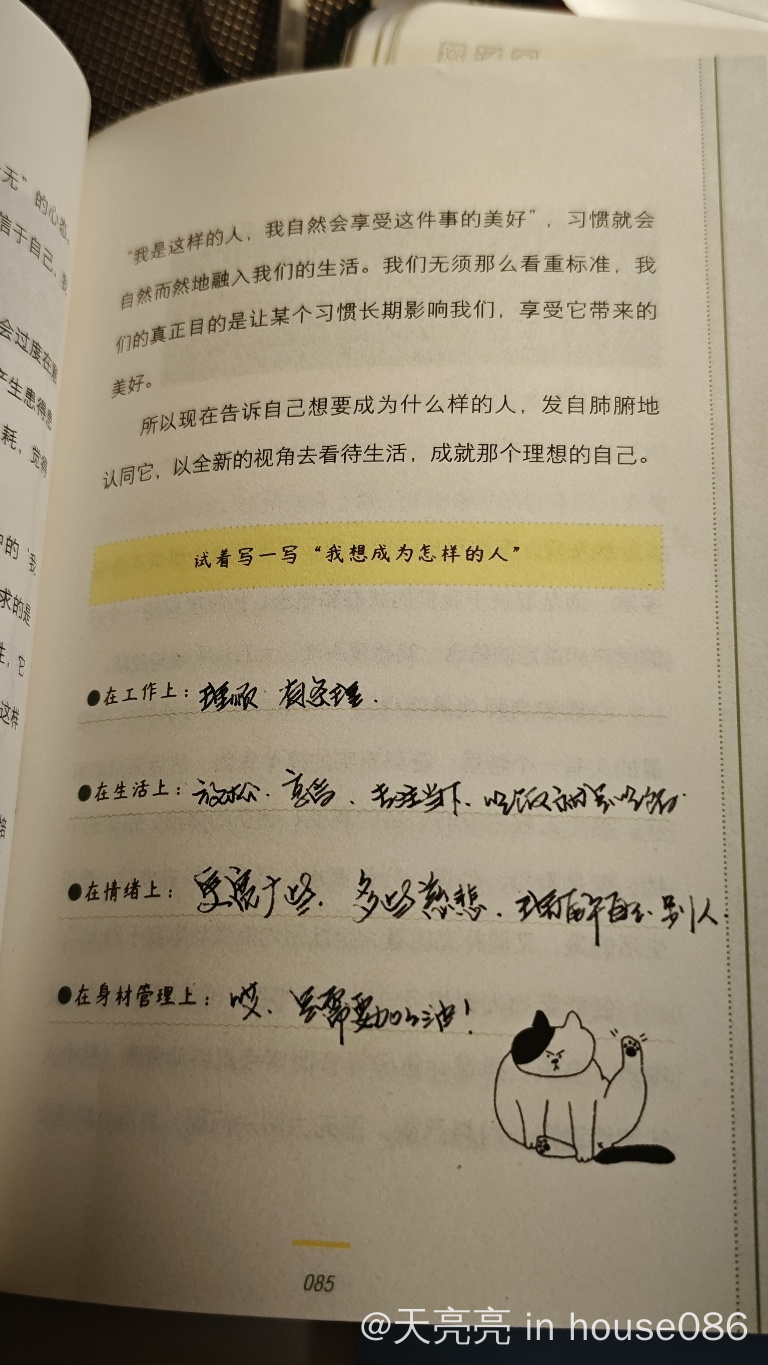 无”的心态，
信于自己，我
会过度在意
产生患得患
耗，觉得
中的‘我
求的是
生，它
这样
“我是这样的人，我自然会享受这件事的美好”，习惯就会
自然而然地融入我们的生活。我们无须那么看重标准，我
们的真正目的是让某个习惯长期影响我们，享受它带来的
美好。
所以现在告诉自己想要成为什么样的人，发自肺腑地
认同它，以全新的视角去看待生活，成就那个理想的自己。
试着写一写“我想成为怎样的人”
●在工作上：理顺 有条理.
●在生活上：放松. 专注当下.
●在情绪上：多些慈悲. 别人.
●在身材管理上：哎. 需要加油！
085
@天亮亮 in house086